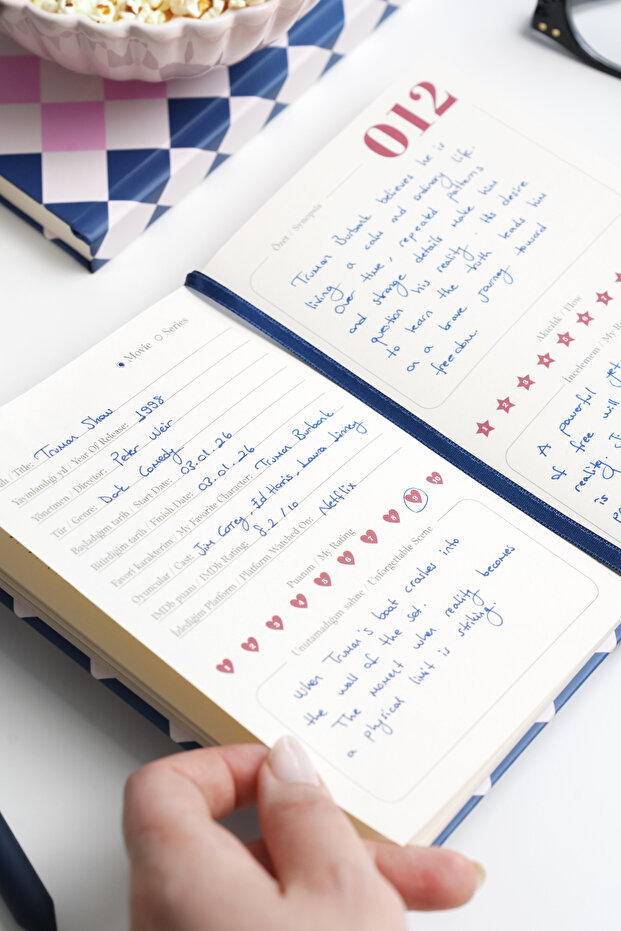 Movie Series
Title: Truman Show
Yayınlandığı yıl / Year Of Release: 1998
Yönetmen / Director: Peter Weir
Tür / Genre: Dark Comedy
Başladığım tarih / Start Date: 03.01.26
Bitirdiğim tarih / Finish Date: 03.01.26
Favori karakterim / My Favorite Character: Truman Burbank
Oyuncular / Cast: Jim Carrey, Ed Harris, Laura Linney
IMDb puanı / IMDb Rating: 8.2/10
İzlediğim Platform / Platform Watched On: Netflix
Puanım / My Rating
1 2 3 4 5 6 7 8 9 10
Unutamadığım sahne / Unforgettable Scene
When Truman's boat crashes into
the wall of the set.
The moment when reality becomes
a physical limit is striking
012
Özet / Synopsis
Truman Burbank believes he is
living a calm and ordinary life.
Over time, repeated patterns
and strange details make him
question his reality. His desire
to learn the truth leads him
on a brave journey toward
freedom.
Akıcılık / Flow
1 2 3 4 5 6
İncelemem / My Re
A powerful yet
of free will
reality.
is